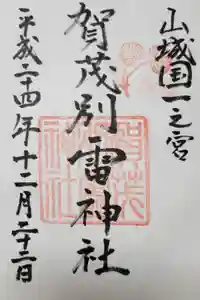 山城国一之宮
賀茂別雷神社
平成二十四年十二月二十三日